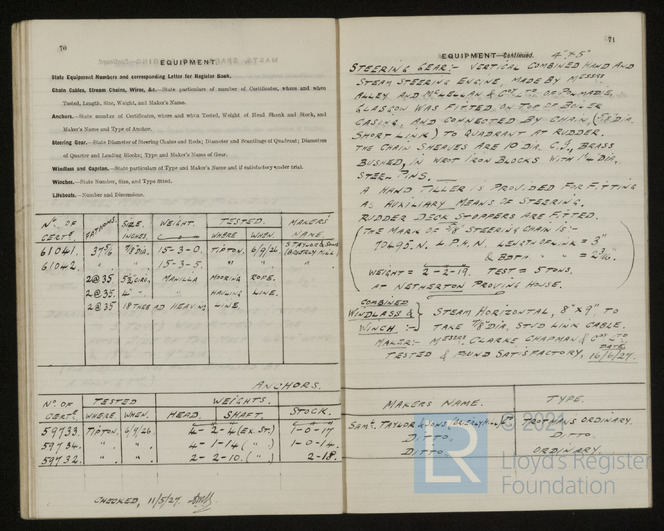 70
EQUIPMENT
State Equipment Numbers and corresponding Letter for Register Book.
Chain Cables, Stream Chains, Wires, &c.—State particulars of number of Certificates, where and when
Tested, Length, Size, Weight, and Maker's Name.
Anchors.—State number of Certificates, where and when Tested, Weight of Head Shank and Stock, and
Maker's Name and Type of Anchor.
Steering Gear.—State Diameter of Steering Chains and Rods; Diameter and Scantlings of Quadrant; Diameters
of Quarter and Leading Blocks; Type and Maker's Name of Gear.
Windlass and Capstan.—State particulars of Type and Maker's Name and if satisfactory under trial.
Winches.—State Number, Size, and Type fitted.
Lifeboats.—Number and Dimensions.
No. OF CERTE. FATHOMS. SIZE. INCHES. WEIGHT. TESTED. WHERE WHEN. MAKERS NAME
61041. 7/8 DIA. 15-3-0. TIPTON. 6/9/26. S TAYLOR & SONS
61042. " " 15-3-5. " "
2@35. MANILLA MOORING ROPE.
2@35. 4" " HAULING LINE.
2@35 18 THREAD HEAVING LINE.
ANCHORS.
No. OF CERTE. TESTED WHERE. WHEN. WEIGHTS. HEAD. SHAFT. STOCK.
59733. TIPTON. 6/9/26. 4-2-4 (EX. ST.) 1-0-17
59734. " " 4-1-14 ( " ) 1-0-14.
59732. " " 2-2-10. ( " ) 2-18.
CHECKED, 11/5/27.
71
EQUIPMENT—Continued. 4" & 5"
STEERING GEAR:- VERTICAL COMBINED HAND AND
STEAM STEERING ENGINE, MADE BY MESSRS
ALLEY AND MCLELLAN & COY. LTD. OF POLMADIE,
GLASGOW WAS FITTED ON TOP OF BOILER
CASING, AND CONNECTED BY CHAIN, (5/8 DIA.
SHORT LINK) TO QUADRANT AT RUDDER.
THE CHAIN SHEAVES ARE 10 DIA. C.I., BRASS
BUSHED, IN WROT IRON BLOCKS WITH 1 1/4 DIA.
STEEL PINS.
A HAND TILLER IS PROVIDED FOR FITTING
AS AUXILIARY MEANS OF STEERING.
RUDDER DECK STOPPERS ARE FITTED.
(THE MARK OF 5/8" STEERING CHAIN IS:-
70495. N. L.P.H.N. LENGTH OF LINK = 3"
& BDTH " " = 2 3/16.
WEIGHT = 2-2-19. TEST = 5 TONS.
AT NETHERTON PROVING HOUSE.)
COMBINED
WINDLASS & STEAM HORIZONTAL, 8" x 9", TO
WINCH :- TAKE 7/8 DIA. STUD LINK CABLE.
MAKER:- MESSRS CLARKE CHAPMAN & COY. LTD
GATES
TESTED & FOUND SATISFACTORY, 16/6/27.
MAKERS NAME. TYPE.
SAML. TAYLOR & SONS (BRIERLY HILL) LTD TROTMANS ORDINARY.
DITTO. DITTO.
DITTO. ORDINARY.
© 2021
LR
Lloyd's Register
Foundation